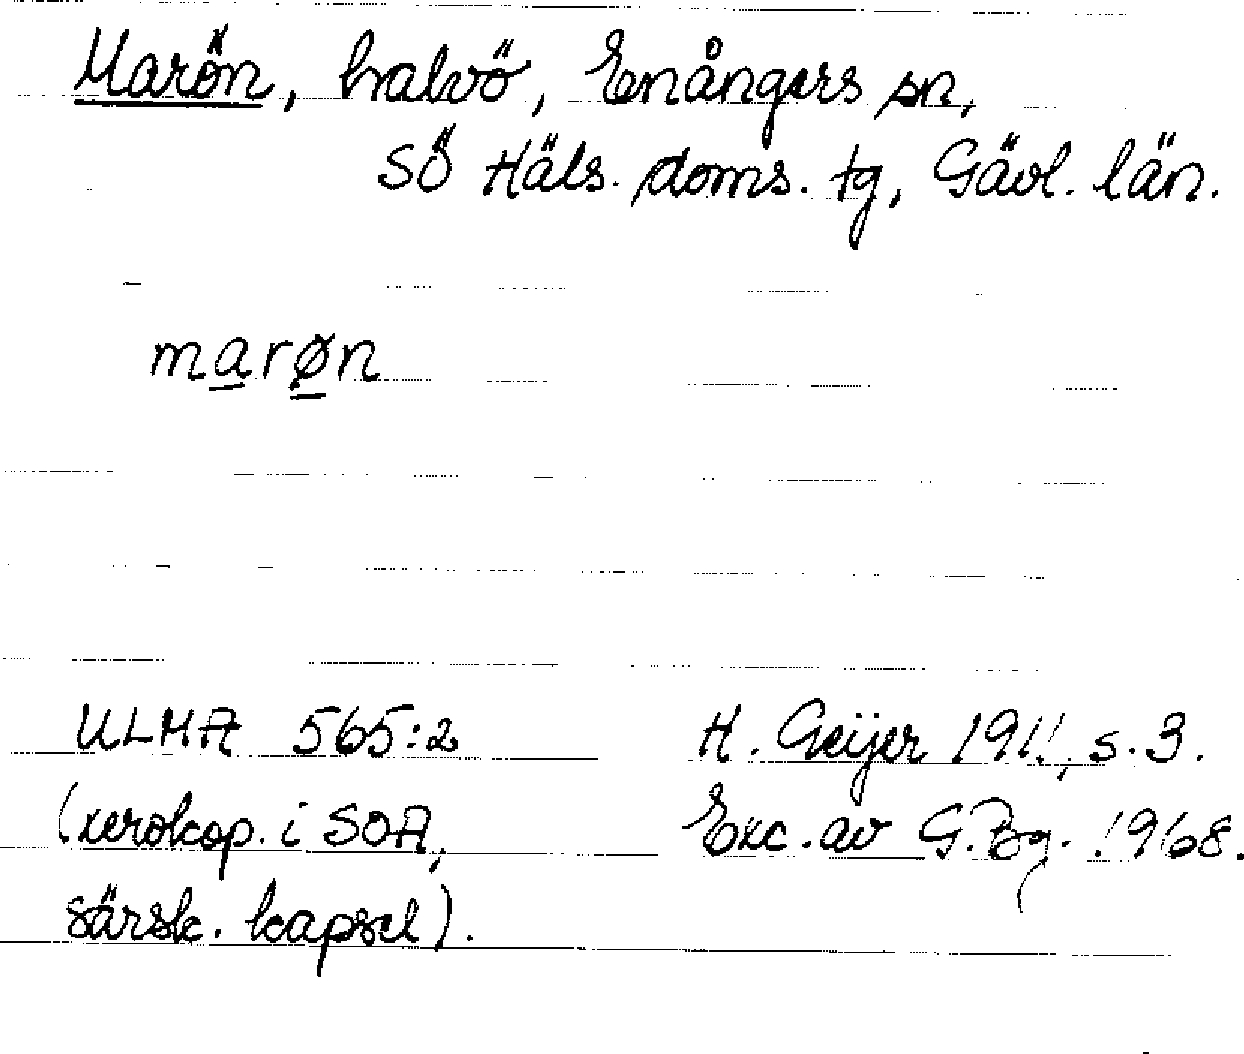 Marön, halvö, Enångers sn,
SÖ Häls. doms. tg, Gävl. län.
marøn
ULMA 565:2
(xerokop. i SOA,
särsk. kapsel).
H. Geijer 1911, s. 3.
Exc. av G. Bg. 1968.